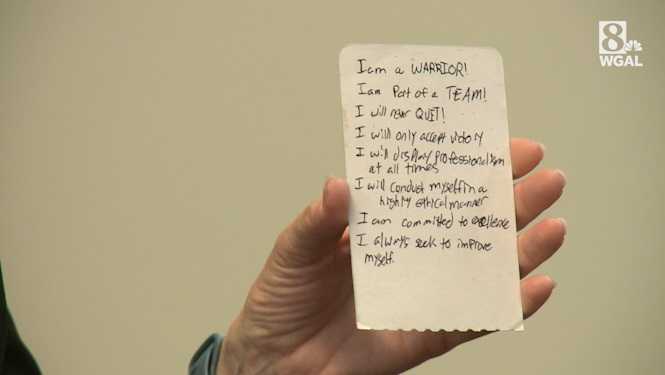 8
WGAL
I am a WARRIOR!
I am Part of a TEAM!
I will never QUIT!
I will only accept victory
I will display professionalism
at all times
I will conduct myself in a
highly ethical manner
I am committed to excellence
I always seek to improve
myself.